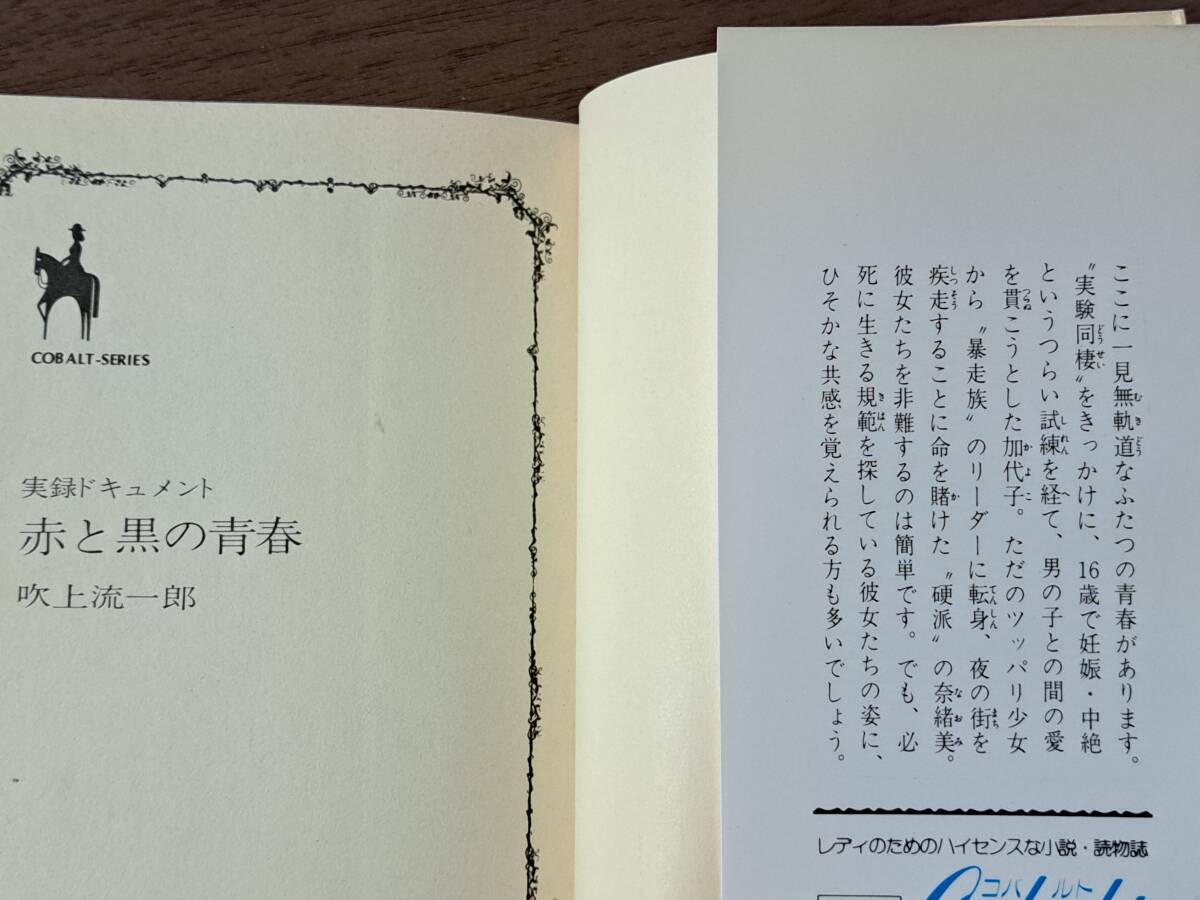 COBALT-SERIES
実録ドキュメント
赤と黒の青春
吹上流一郎
ここに一見無軌道なふたつの青春があります。
〝実験同棲〟をきっかけに、16歳で妊娠・中絶
というつらい試練を経て、男の子との間の愛
を貫こうとした加代子。ただのツッパリ少女
から〝暴走族〟のリーダーに転身、夜の街を
疾走することに命を賭けた〝硬派〟の奈緒美。
彼女たちを非難するのは簡単です。でも、必
死に生きる規範を探している彼女たちの姿に、
ひそかな共感を覚えられる方も多いでしょう。
レディのためのハイセンスな小説・読物誌
コバルト